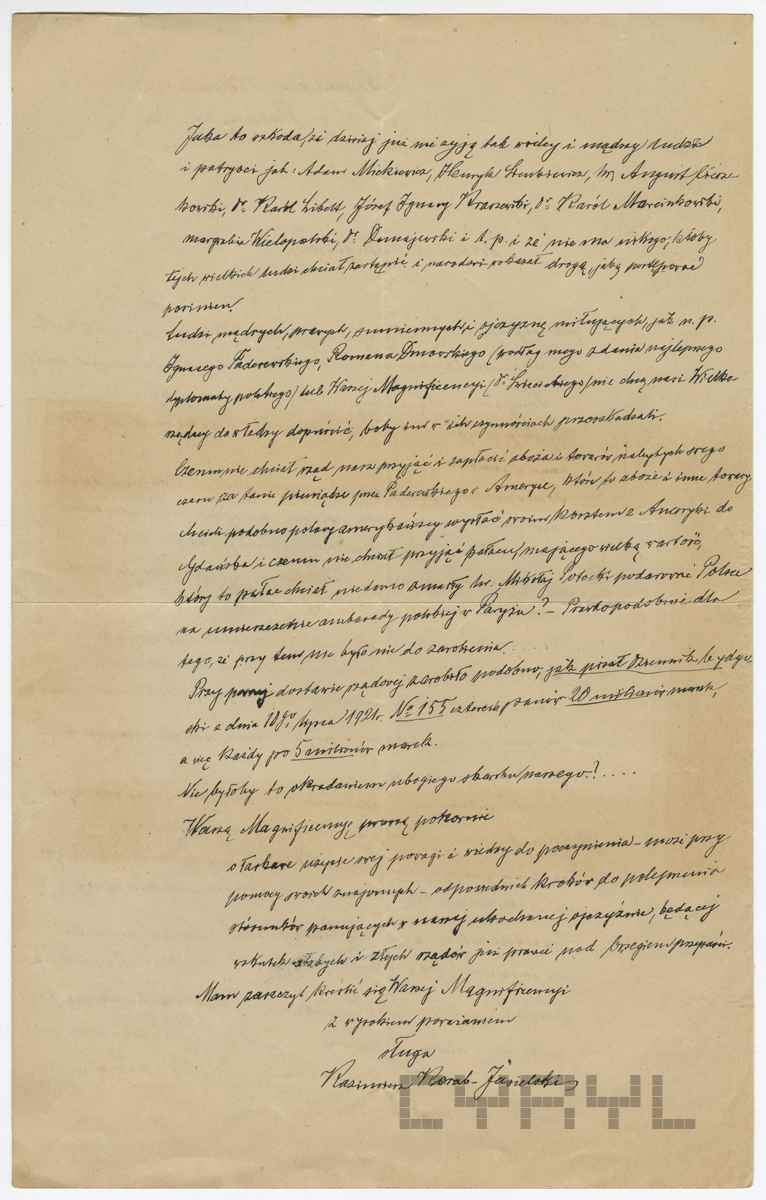 Jaka to szkoda, że dzisiaj już nie żyją tak wielcy i mądrzy ludzie
i patryoci jak: Adam Mickiewicz, Henryk Sienkiewicz, hr. August Ciesz-
kowski, dr. Karól Libelt, Józef Ignacy Kraszewski, dr. Karól Marcinkowski,
margrabia Wielopolski, dr. Dunajewski i t. p. i że nie ma nikogo, któby
tych wielkich ludzi chciał zastąpić i narodowi wskazał drogą, jaką postępować
powinien.
Ludzi mądrych, prawych, sumiennych i ojczyznę miłujących, jak n. p.
Ignacego Paderewskiego, Romana Dmowskiego (podług mego zdania najlepszego
dyplomaty polskiego) lub Waszej Magnificencyi (dr. Święcickiego) nie chcą nasi Wielko-
rządcy do władzy dopuścić, boby im w ich czynnościach przeszkadzali.
Czemu nie chciał rząd nasz przyjąć i zapłacić zboża i towarów, nabytych swego
czasu za tanie pieniądze przez Paderewskiego w Ameryce, które to zboże i inne towary
chcieli podobno polacy amerykańscy wysłać swoim kosztem z Ameryki do
Gdańska i czemu nie chciał przyjąć pałacu, mającego wielką wartość,
który to pałac chciał niedawno zmarły hr. Mikołaj Potocki podarować Polsce
na umieszczenie ambasady polskiej w Paryżu? – Prawdopodobnie dla
tego, że przy tem nie było nic do zarobienia......
Przy pewnej dostawie rządowej zarobiło podobno, jak pisał Dziennik bydgo-
ski z dnia 10go lipca 1921 r. No 155 czterech panów 20 milionów marek,
a więc każdy po 5 milionów marek.
Nie byłoby to okradaniem ubogiego skarbu naszego?....
Waszą Magnificencyę proszę pokornie
o łaskawe użycie swej powagi i wiedzy do poczynienia – może przy
pomocy swoich znajomych – odpowiednich kroków do polepszenia
stosunków panujących w naszej ukochanej ojczyźnie, będącej
wskutek słabych i złych rządów już prawie nad brzegiem przepaści.
Mam zaszczyt kreślić się Waszej Magnificencyi
z wysokiem poważaniem
sługa
Kazimierz Korab-Jasielski
CYRYL